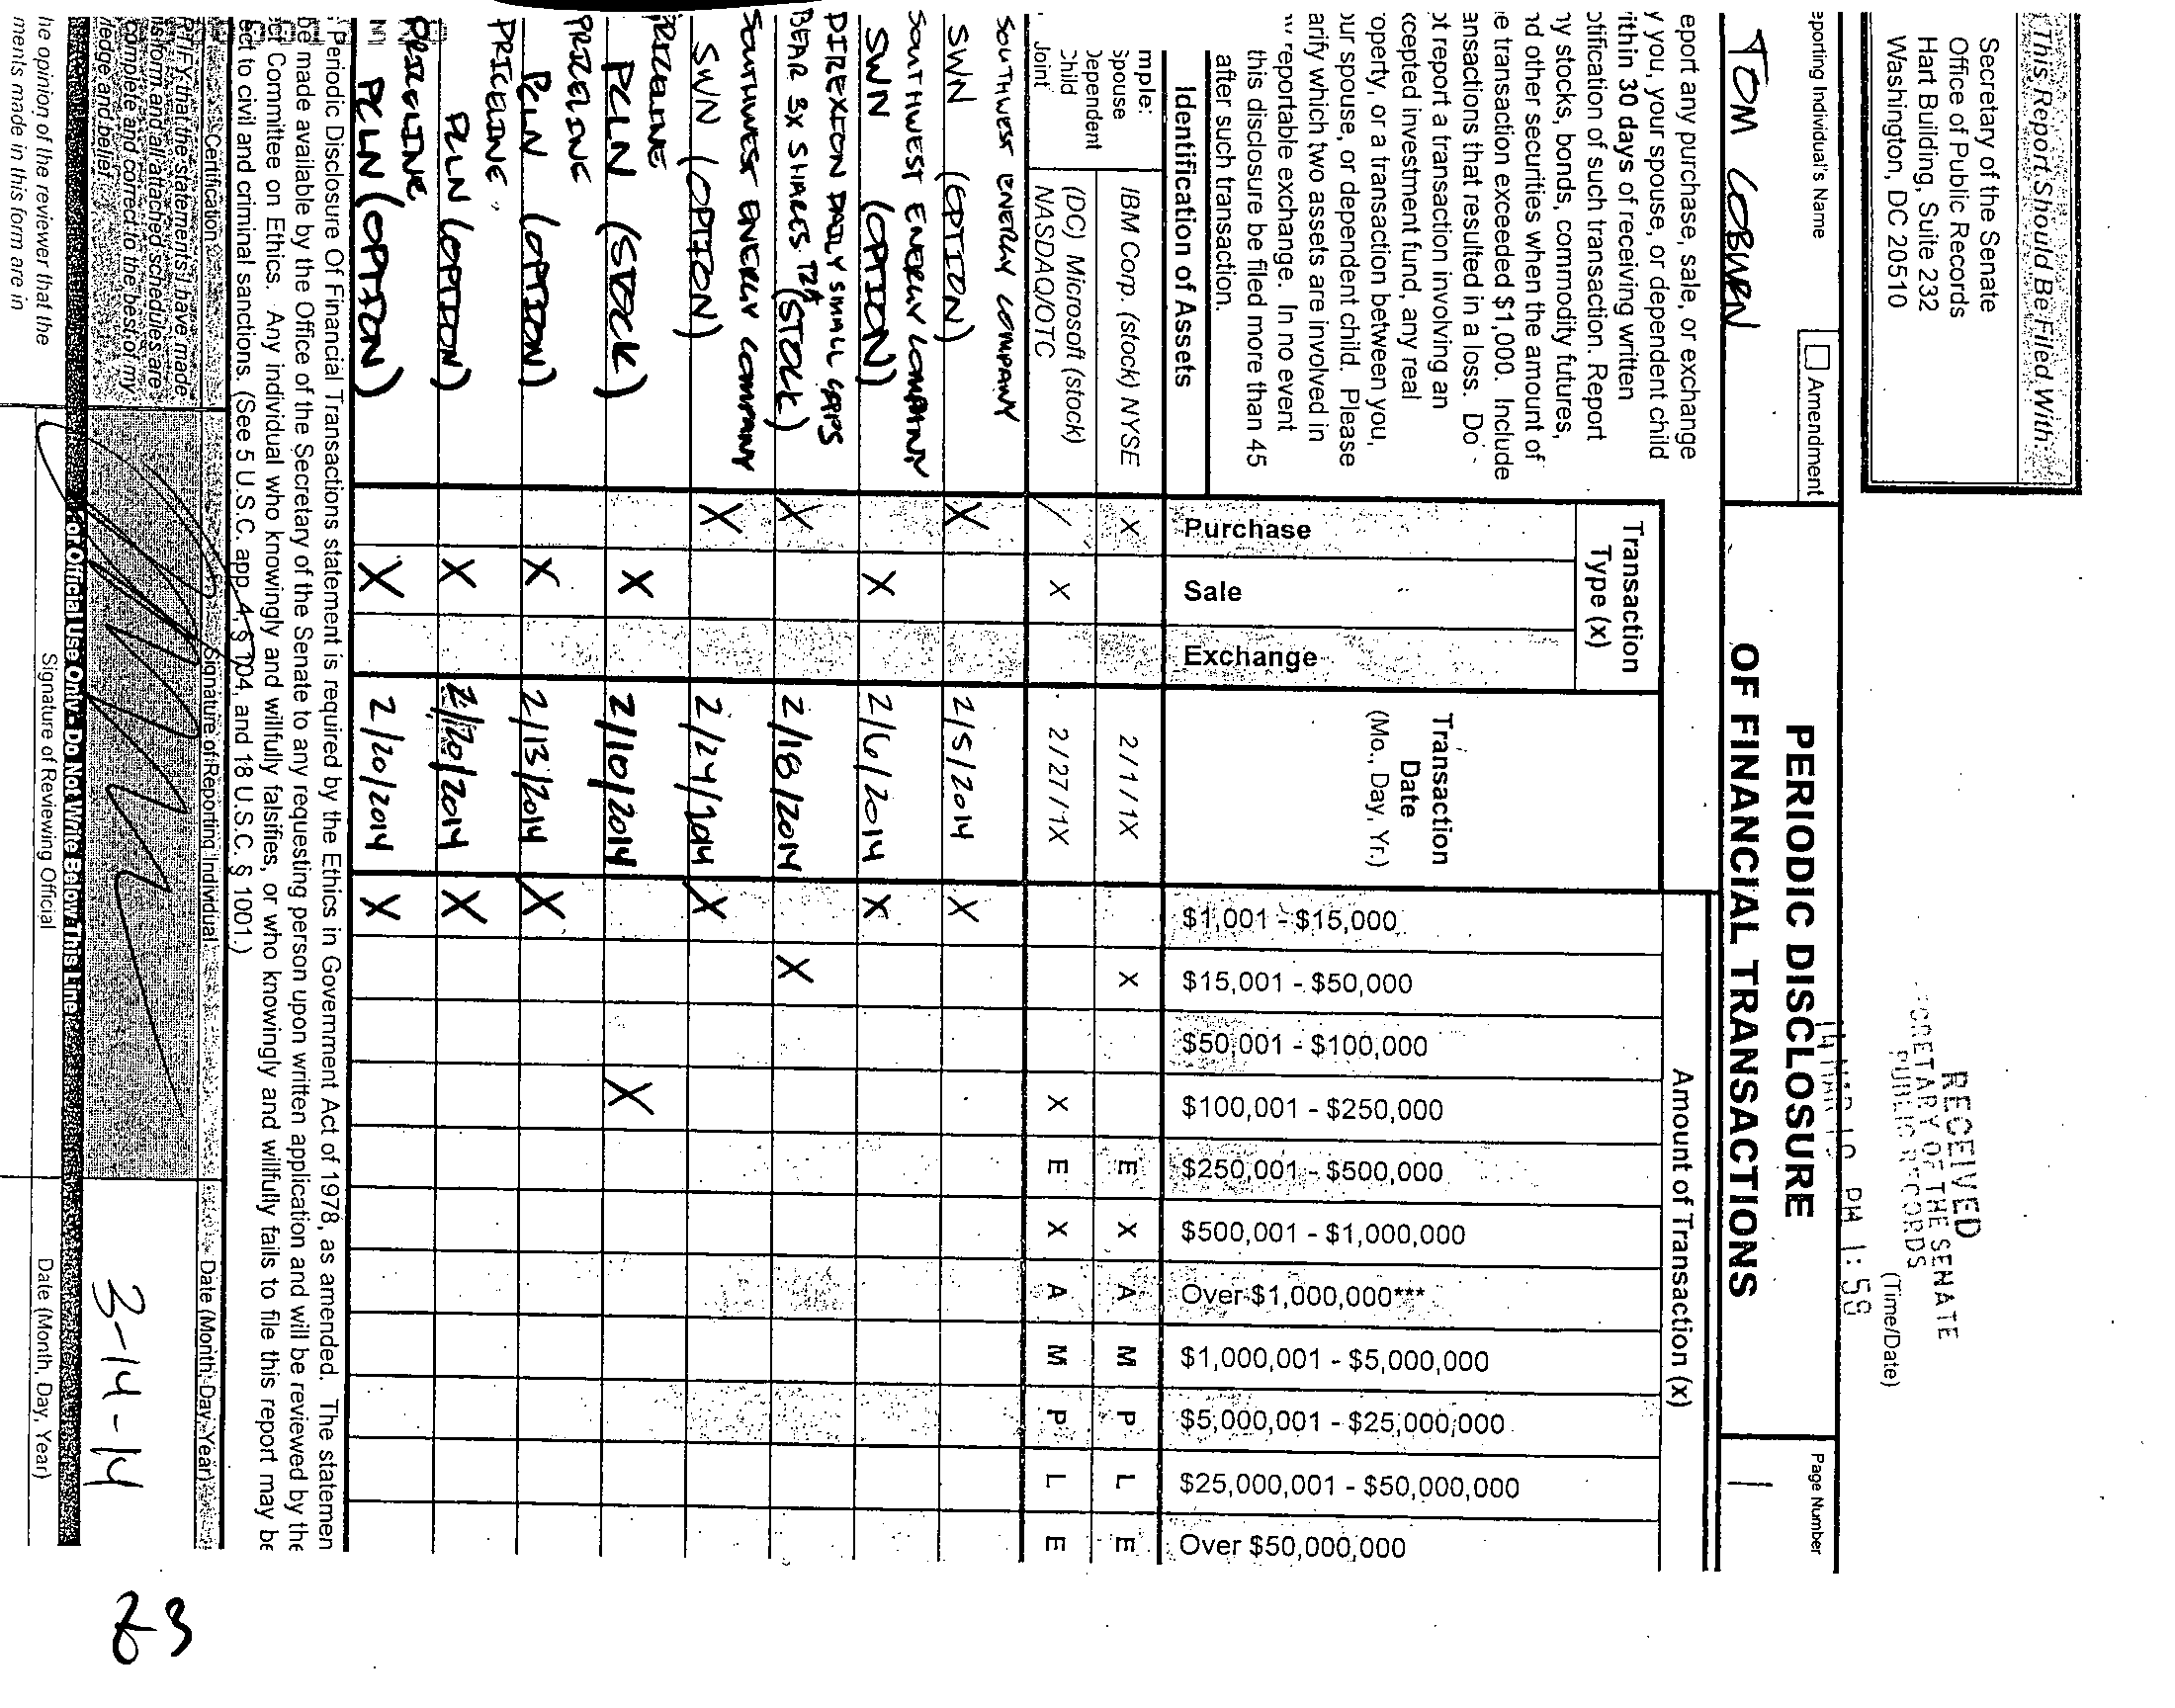 This Report Should Be Filed With:
Secretary of the Senate
Office of Public Records
Hart Building, Suite 232
Washington, DC 20510
RECEIVED
SECRETARY OF THE SENATE
PUBLIC RECORDS
(Time/Date)
PM 1:58
eporting Individual's Name
Amendment
TOM COBURN
PERIODIC DISCLOSURE
OF FINANCIAL TRANSACTIONS
Page Number
1
eport any purchase, sale, or exchange
y you, your spouse, or dependent child
ithin 30 days of receiving written
otification of such transaction. Report
ny stocks, bonds, commodity futures,
nd other securities when the amount of
e transaction exceeded $1,000. Include
ansactions that resulted in a loss. Do
ot report a transaction involving an
xcepted investment fund, any real
operty, or a transaction between you,
our spouse, or dependent child. Please
arify which two assets are involved in
reportable exchange. In no event
this disclosure be filed more than 45
after such transaction.
Transaction
Type (x)
Amount of Transaction (x)
Identification of Assets
Purchase
Sale
Exchange
Transaction
Date
(Mo., Day, Yr.)
$1,001 - $15,000
$15,001 - $50,000
$50,001 - $100,000
$100,001 - $250,000
$250,001 - $500,000
$500,001 - $1,000,000
Over $1,000,000***
$1,000,001 - $5,000,000
$5,000,001 - $25,000,000
$25,000,001 - $50,000,000
Over $50,000,000
mple:
Spouse
Dependent
Child
Joint
IBM Corp. (stock) NYSE X 2/1/1X X E X A M P L E
(DC) Microsoft (stock)
NASDAQ/OTC X 2/27/1X X E X A M P L E
SOUTHWEST ENERGY COMPANY
SWN (OPTION) X 2/5/2014 X
SOUTHWEST ENERGY COMPANY
SWN (OPTION) X 2/6/2014 X
DIREXION DAILY SMALL CAPS
BEAR 3X SHARES TZA (STOCK) X 2/18/2014 X
SOUTHWEST ENERGY COMPANY
SWN (OPTION) X 2/24/2014 X
PRICELINE
PCLN (STOCK) X 2/10/2014 X
PRICELINE
PCLN (OPTION) X 2/13/2014 X
PRICELINE
PCLN (OPTION) X 2/20/2014 X
PRICELINE
PCLN (OPTION) X 2/20/2014 X
Periodic Disclosure Of Financial Transactions statement is required by the Ethics in Government Act of 1978, as amended. The statemen
be made available by the Office of the Secretary of the Senate to any requesting person upon written application and will be reviewed by the
ct Committee on Ethics. Any individual who knowingly and willfully falsifies, or who knowingly and willfully fails to file this report may be
ect to civil and criminal sanctions. (See 5 U.S.C. app. 4, § 104, and 18 U.S.C. § 1001.)
Certification
Signature of Reporting Individual
Date (Month, Day, Year)
RTIFY that the statements I have made
is form and all attached schedules are
complete and correct to the best of my
ledge and belief.
3-14-14
For Official Use Only - Do Not Write Below This Line
he opinion of the reviewer that the
ments made in this form are in
Signature of Reviewing Official
Date (Month, Day, Year)